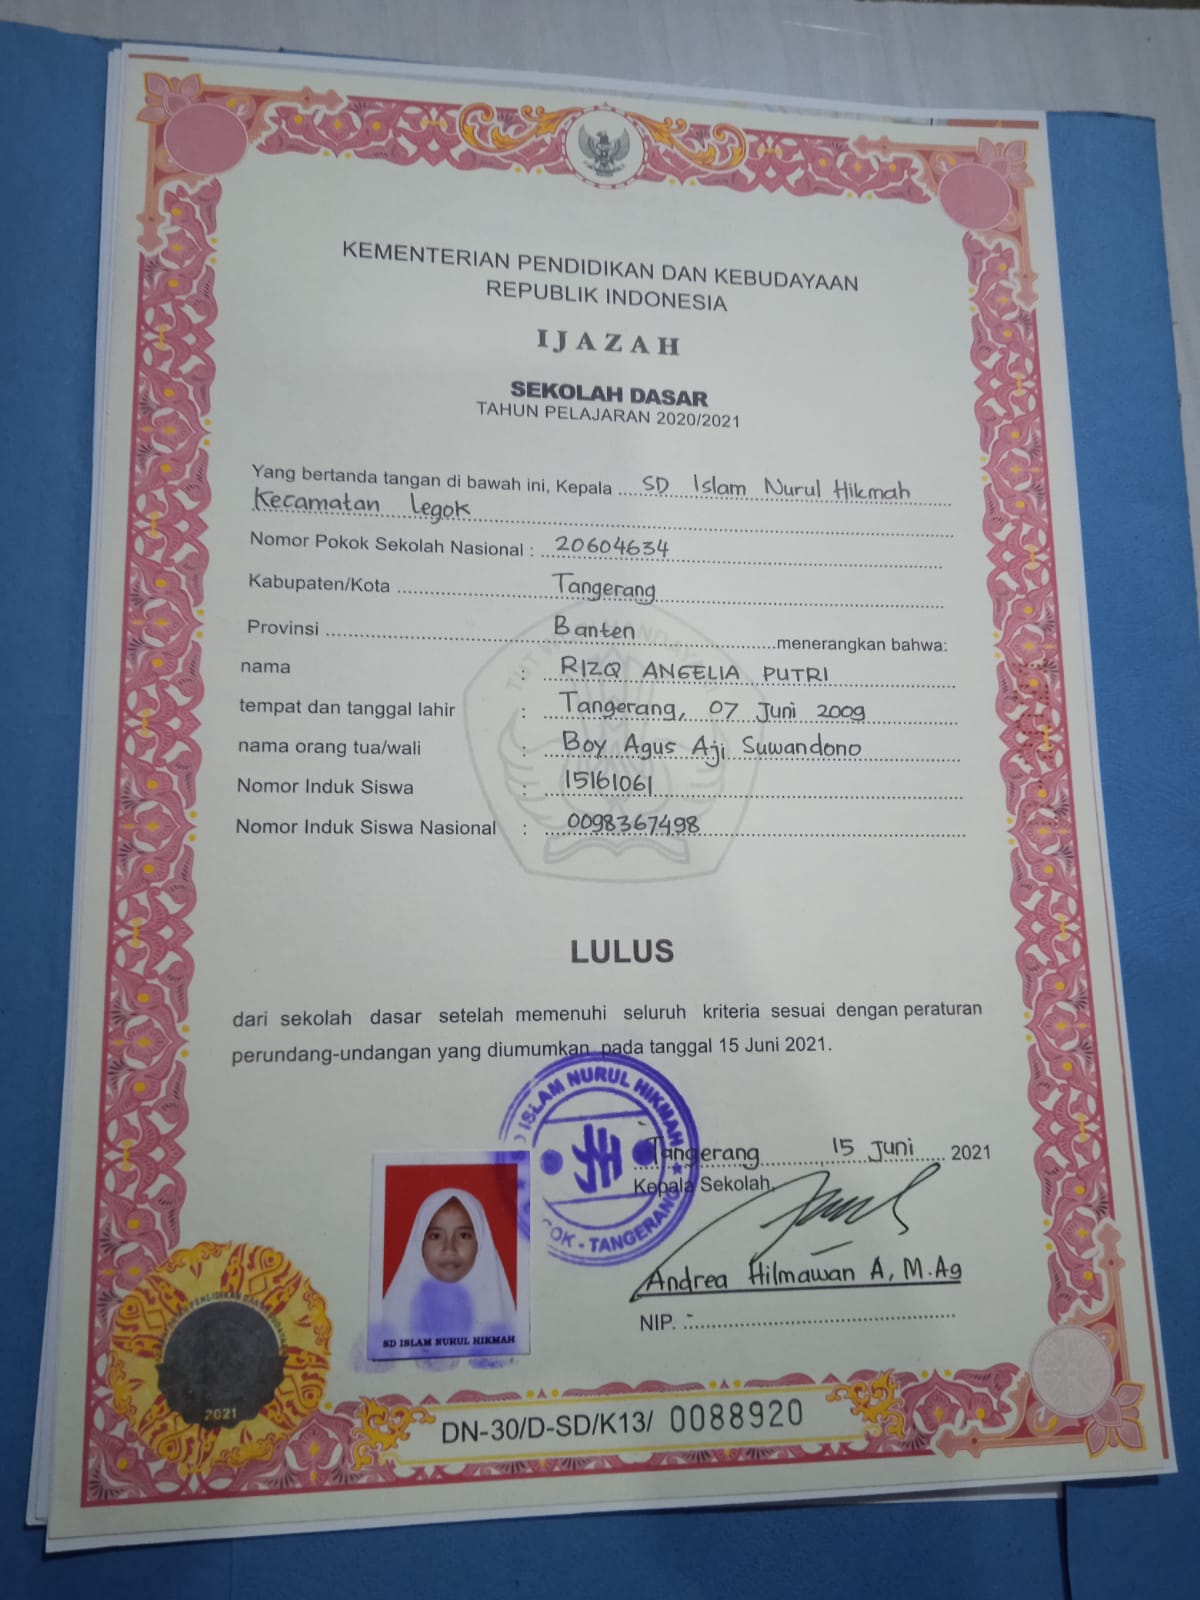 KEMENTERIAN PENDIDIKAN DAN KEBUDAYAAN
REPUBLIK INDONESIA
IJAZAH
SEKOLAH DASAR
TAHUN PELAJARAN 2020/2021
Yang bertanda tangan di bawah ini, Kepala SD Islam Nurul Hikmah
Kecamatan Legok
Nomor Pokok Sekolah Nasional : 20604634
Kabupaten/Kota Tangerang
Provinsi Banten menerangkan bahwa:
nama : RIZQ ANGELIA PUTRI
tempat dan tanggal lahir : Tangerang, 07 Juni 2009
nama orang tua/wali : Boy Agus Aji Suwandono
Nomor Induk Siswa : 15161061
Nomor Induk Siswa Nasional : 0098367498
LULUS
dari sekolah dasar setelah memenuhi seluruh kriteria sesuai dengan peraturan
perundang-undangan yang diumumkan pada tanggal 15 Juni 2021.
ISLAM NURUL HIKMAH
OK - TANGERANG
Tangerang 15 Juni 2021
Kepala Sekolah,
Andrea Hilmawan A, M.Ag
NIP. -
SD ISLAM NURUL HIKMAH
2021
DN-30/D-SD/K13/ 0088920